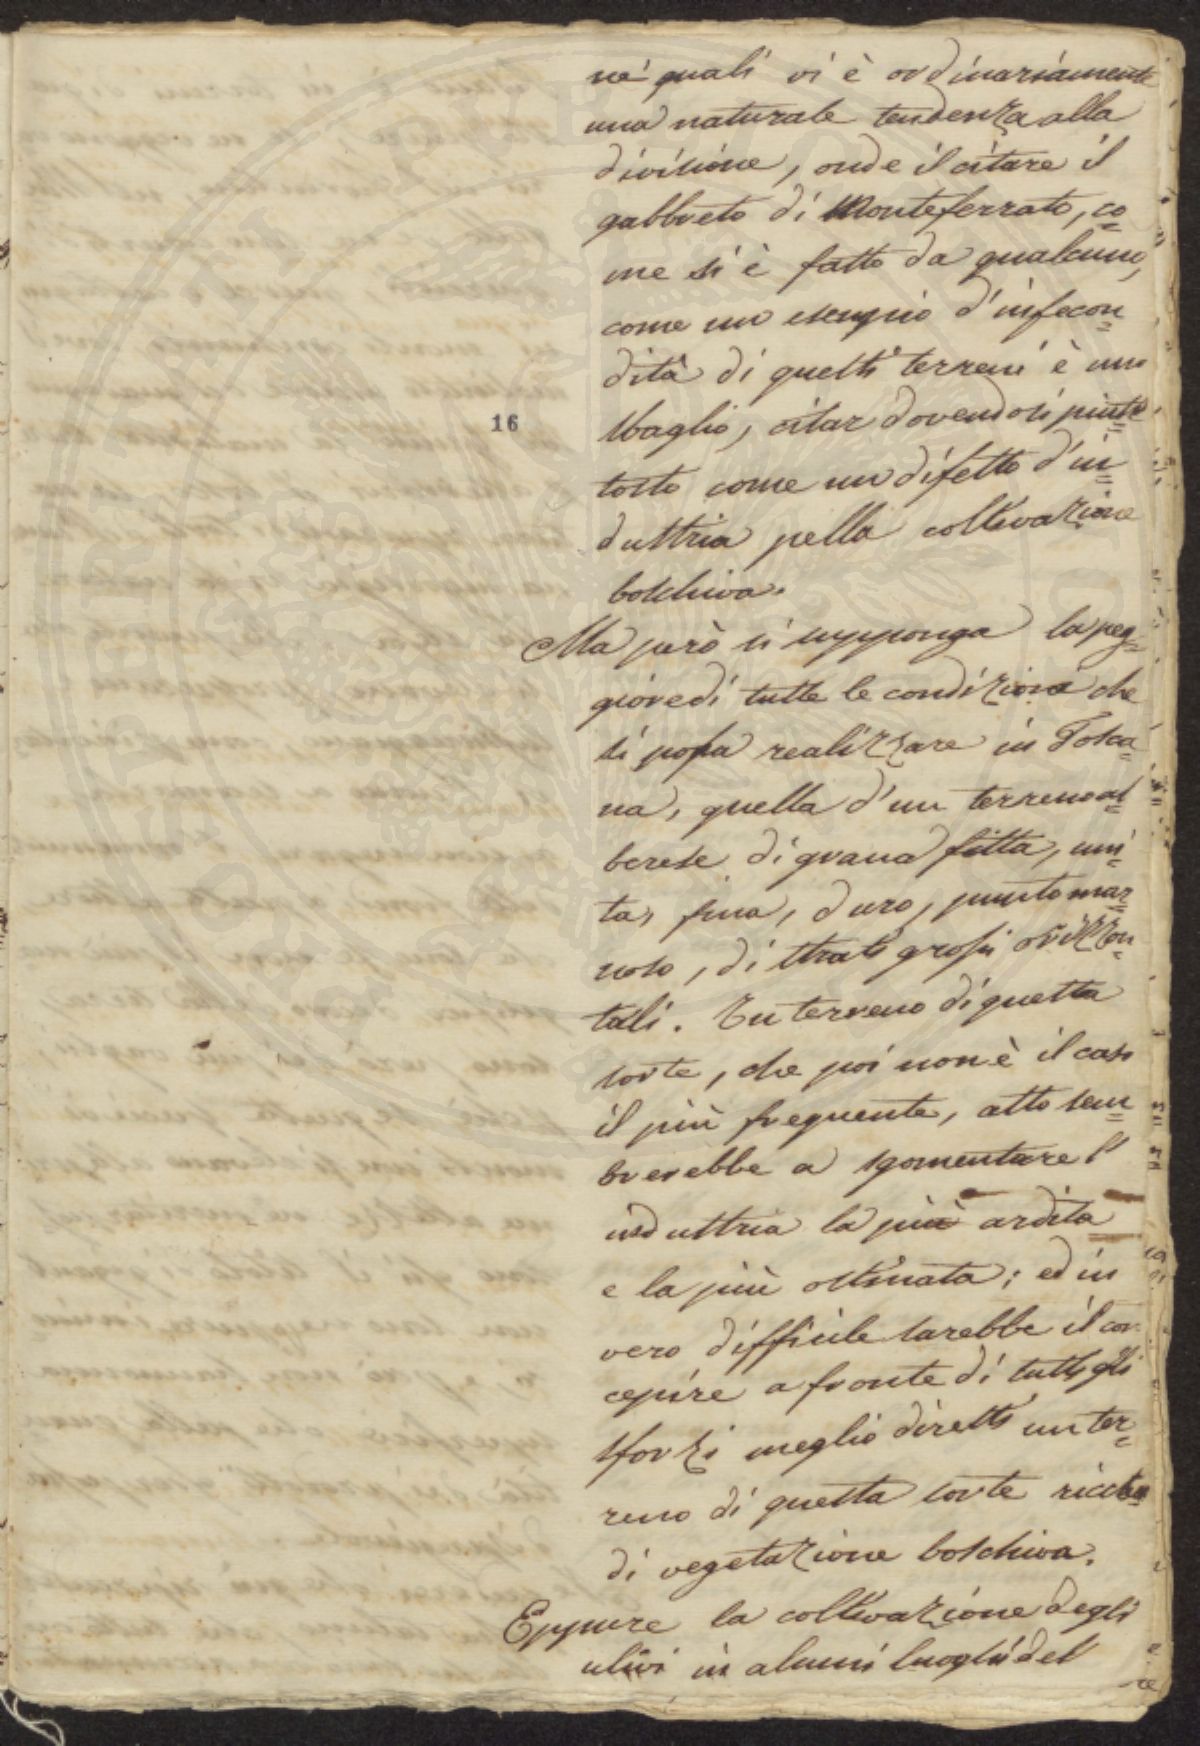 ne' quali vi è ordinariamente
una naturale tendenza alla
divisione, onde il citare il
gabbreto di Monteferrato, co=
me si è fatto da qualcuno,
come un esempio d'infecon=
dità di questi terreni è uno
sbaglio, citar dovendosi piut=
16
tosto come un difetto d'in=
dustria pella coltivazione
boschiva.
Ma però si supponga la peg=
giore di tutte le condizioni che
si possa realizzare in Tosca=
na, quella d'un terreno al=
berese di grana fitta, uni=
ta, fina, duro, punto mar=
noso, di strati grossi orizzon=
tali. Un terreno di questa
sorte, che poi non è il caso
il più frequente, atto sem=
brerebbe a sgomentare l'
industria la più ardita
e la più ostinata; ed in
vero difficile sarebbe il con
cepire a fronte di tutti gli
sforzi meglio diretti un ter=
reno di questa sorte
di vegetazione boschiva.
Eppure la coltivazione degli
ulivi in alcuni luoghi del